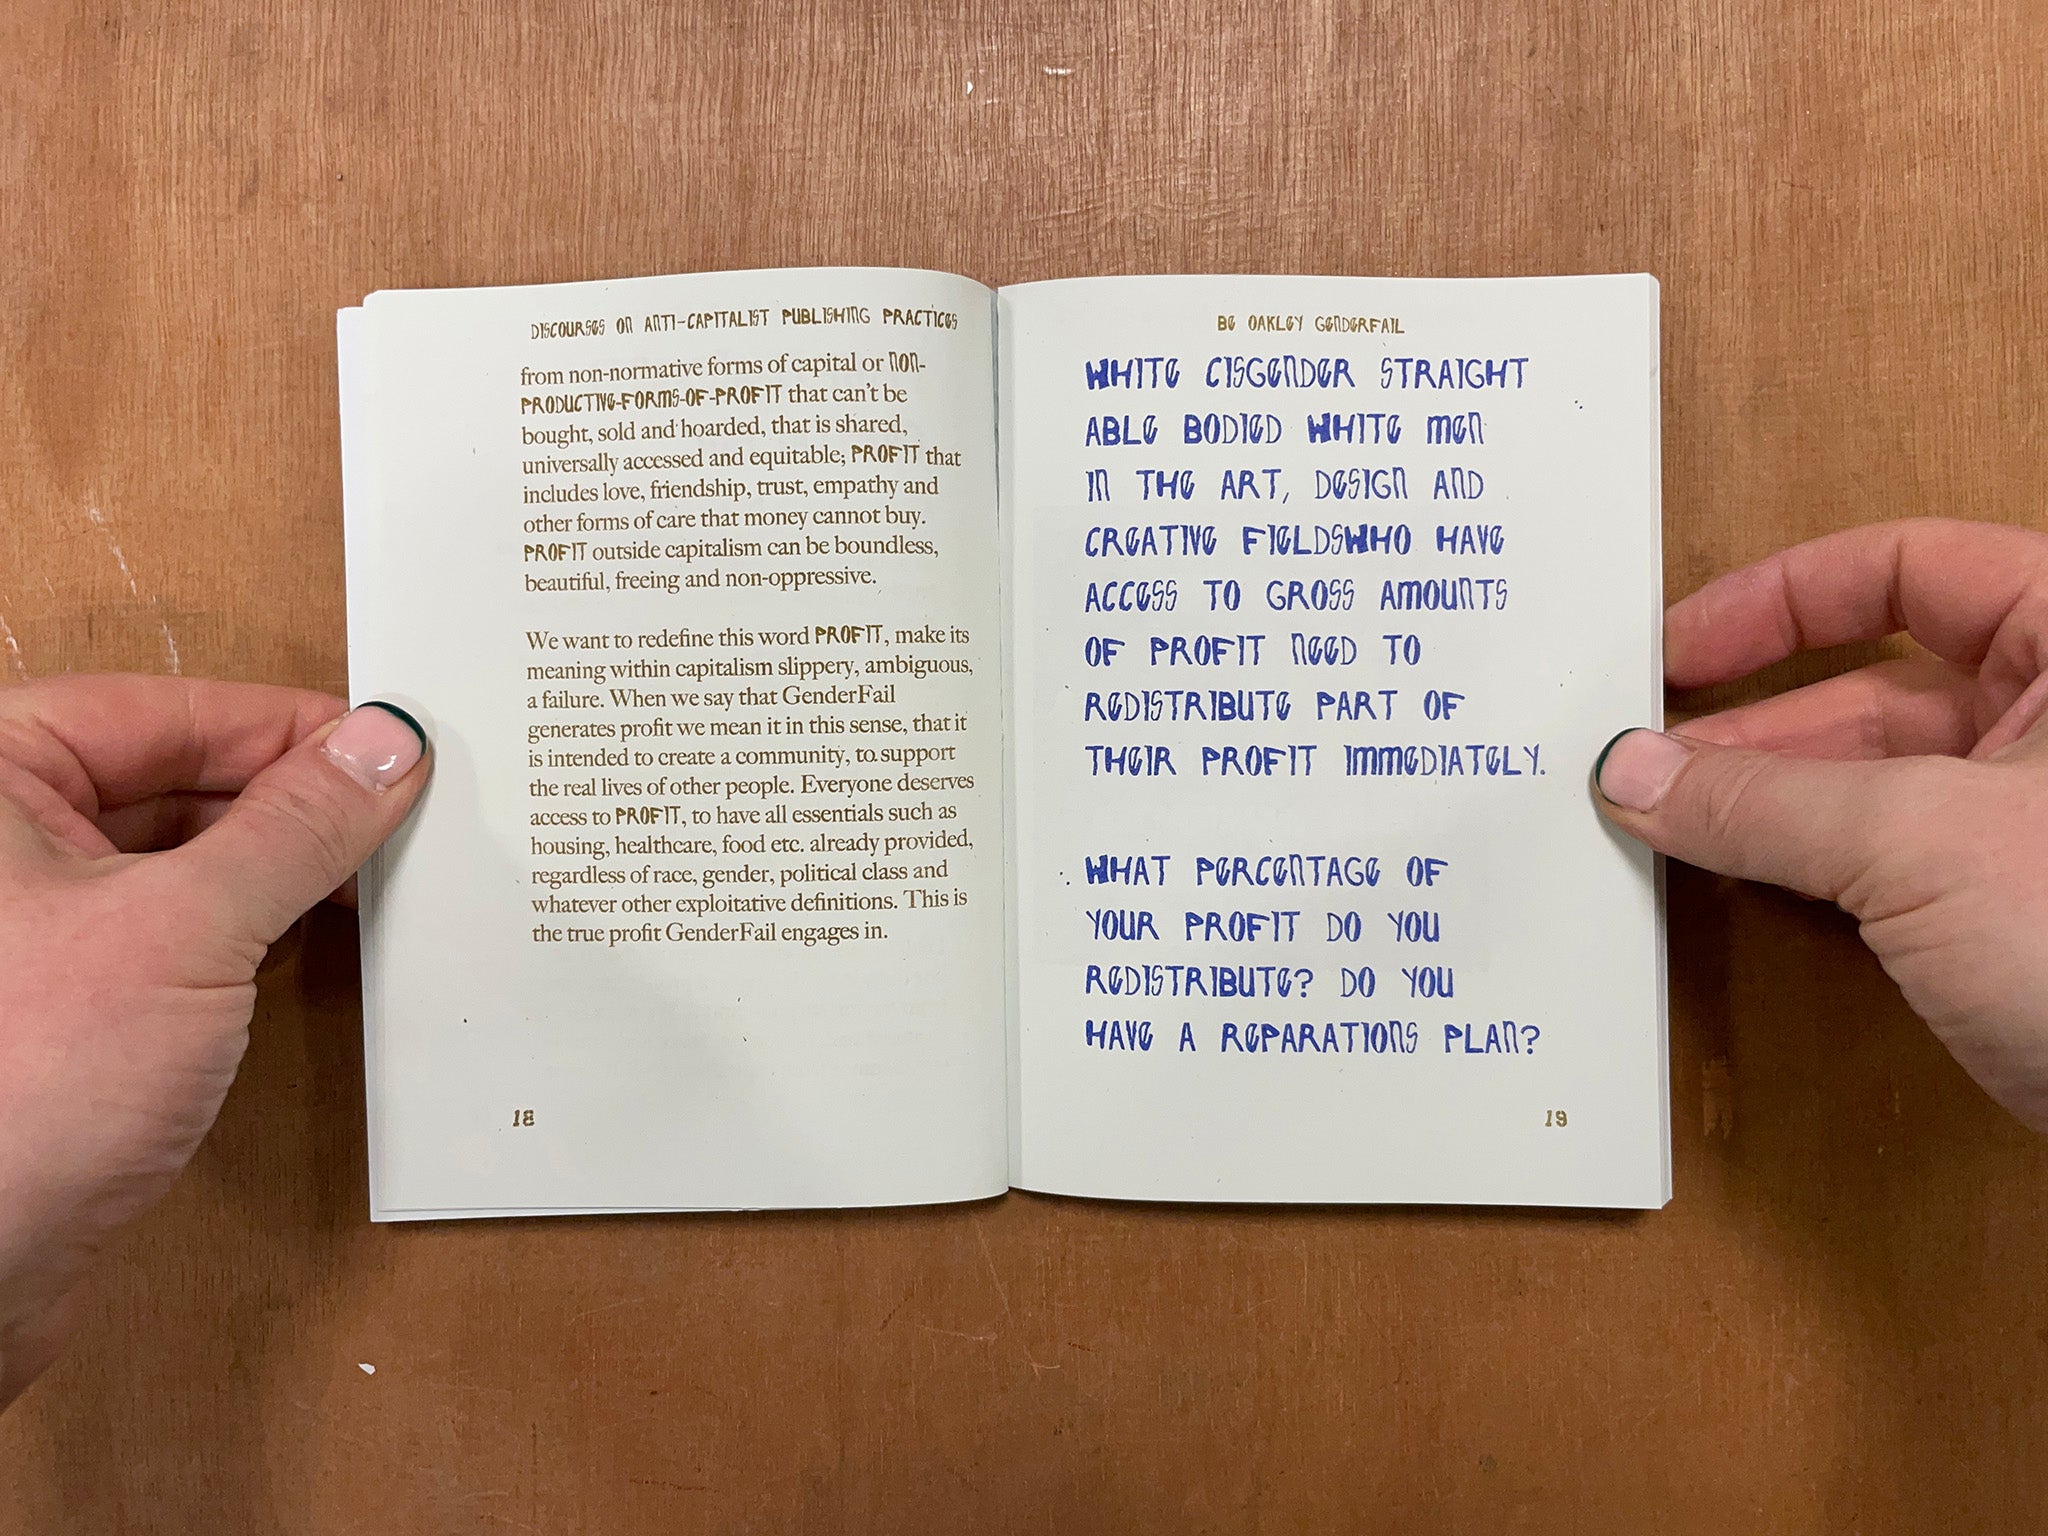 DISCOURSES ON ANTI-CAPITALIST PUBLISHING PRACTICES
from non-normative forms of capital or NON-
PRODUCTIVE-FORMS-OF-PROFIT that can't be
bought, sold and hoarded, that is shared,
universally accessed and equitable; PROFIT that
includes love, friendship, trust, empathy and
other forms of care that money cannot buy.
PROFIT outside capitalism can be boundless,
beautiful, freeing and non-oppressive.
We want to redefine this word PROFIT, make its
meaning within capitalism slippery, ambiguous,
a failure. When we say that GenderFail
generates profit we mean it in this sense, that it
is intended to create a community, to support
the real lives of other people. Everyone deserves
access to PROFIT, to have all essentials such as
housing, healthcare, food etc. already provided,
regardless of race, gender, political class and
whatever other exploitative definitions. This is
the true profit GenderFail engages in.
18
BE OAKLEY GENDERFAIL
WHITE CISGENDER STRAIGHT
ABLE BODIED WHITE MEN
IN THE ART, DESIGN AND
CREATIVE FIELDSWHO HAVE
ACCESS TO GROSS AMOUNTS
OF PROFIT NEED TO
REDISTRIBUTE PART OF
THEIR PROFIT IMMEDIATELY.
WHAT PERCENTAGE OF
YOUR PROFIT DO YOU
REDISTRIBUTE? DO YOU
HAVE A REPARATIONS PLAN?
19